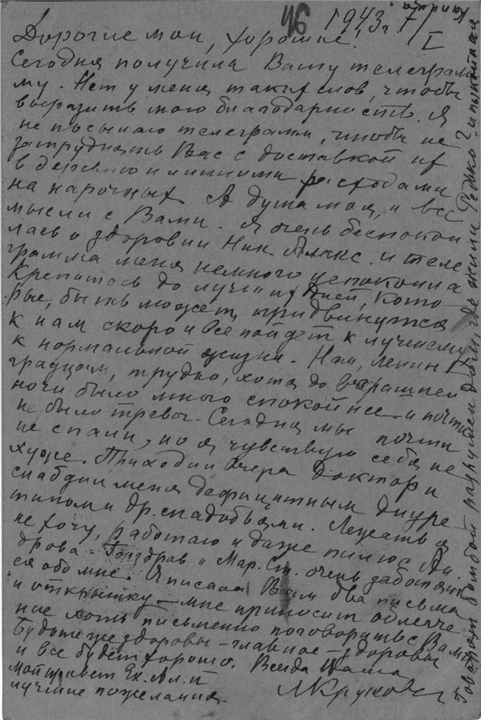 46 1943 г. 7/I
Дорогие мои, хорошие!
Сегодня получила Вашу телеграм
му. Нет у меня таких слов, чтобы
выразить мою благодарность. Я
не посылаю телеграмм, чтобы не
затруднять Вас с доставкой их
в деревню и лишними расходами
на нарочных. А душа моя и все
мысли с Вами. Я очень беспокои
лась о здоровии Ник. Алекс. и теле
грамма меня немного успокоила
Крепитесь до лучших дней, кото
рые, быть может, придвинутся
к нам скоро и все пойдет к лучшему
к нормальной жизни. Нам, Ленин
градцам, трудно, хотя до вчерашней
ночи было много спокойнее и почти
не было тревог. Сегодня мы почти
не спали, но я чувствую себя не
хуже. Приходил вчера доктор и
снабдил меня дефицитным диуре
тином и др. снадобьями. Лежать я
не хочу, работаю и даже пилю
дрова. и Мар. Ст. очень заботят
ся обо мне. Я писала Вам два письма
и открытку – мне приносит облегче
ние хоть письменно поговорить с Вами
Будьте же здоровы – главное – здоровы
и все будет хорошо. Всегда Ваша
мой привет Ек. Ал. и
лучшие пожелания. Круков
Говорят бомбой разрушен дом, где жили Редько